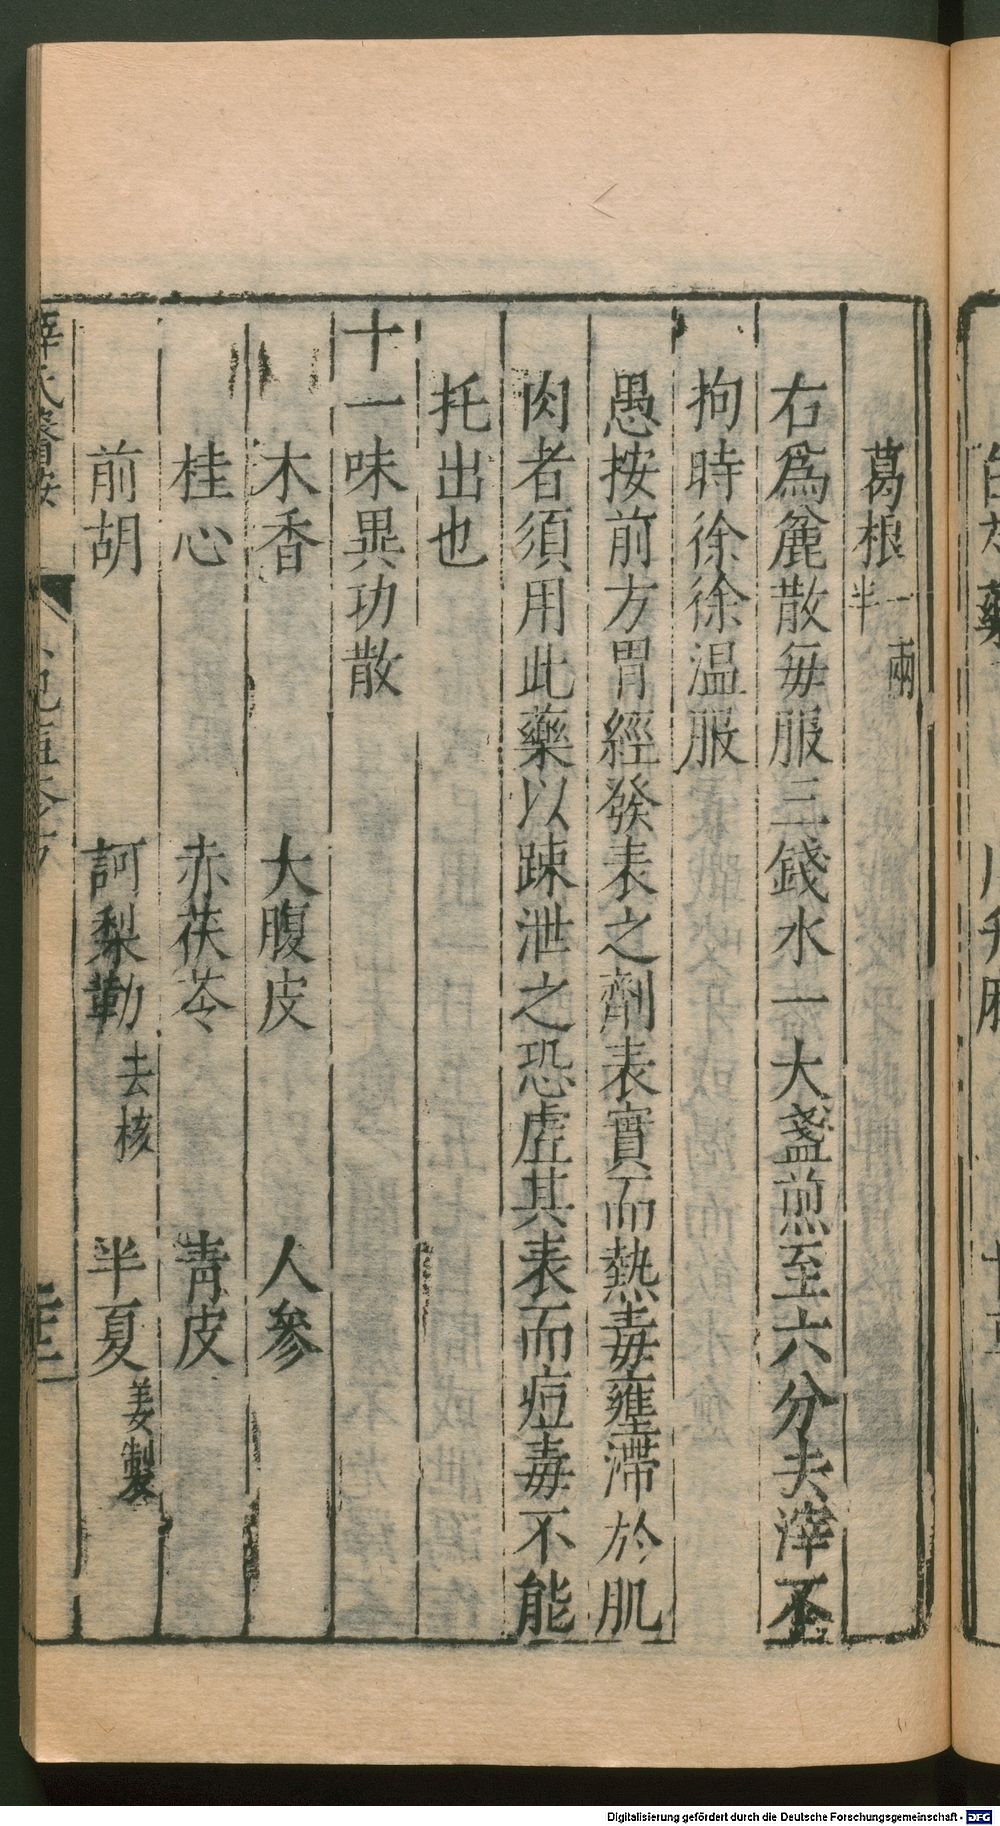 葛根一兩半
右爲麄散每服三錢水一大盞煎至六分去滓不
拘時徐徐温服
愚按前方胃經發表之劑表實而熱毒壅滯於肌
肉者須用此藥以疎泄之恐虛其表而痘毒不能
托出也
十一味異功散
木香 大腹皮 人參
桂心 赤茯苓 靑皮
前胡 訶梨勒去核 半夏姜製
薛氏醫按
Digitalisierung gefördert durch die Deutsche Forschungsgemeinschaft - DFG